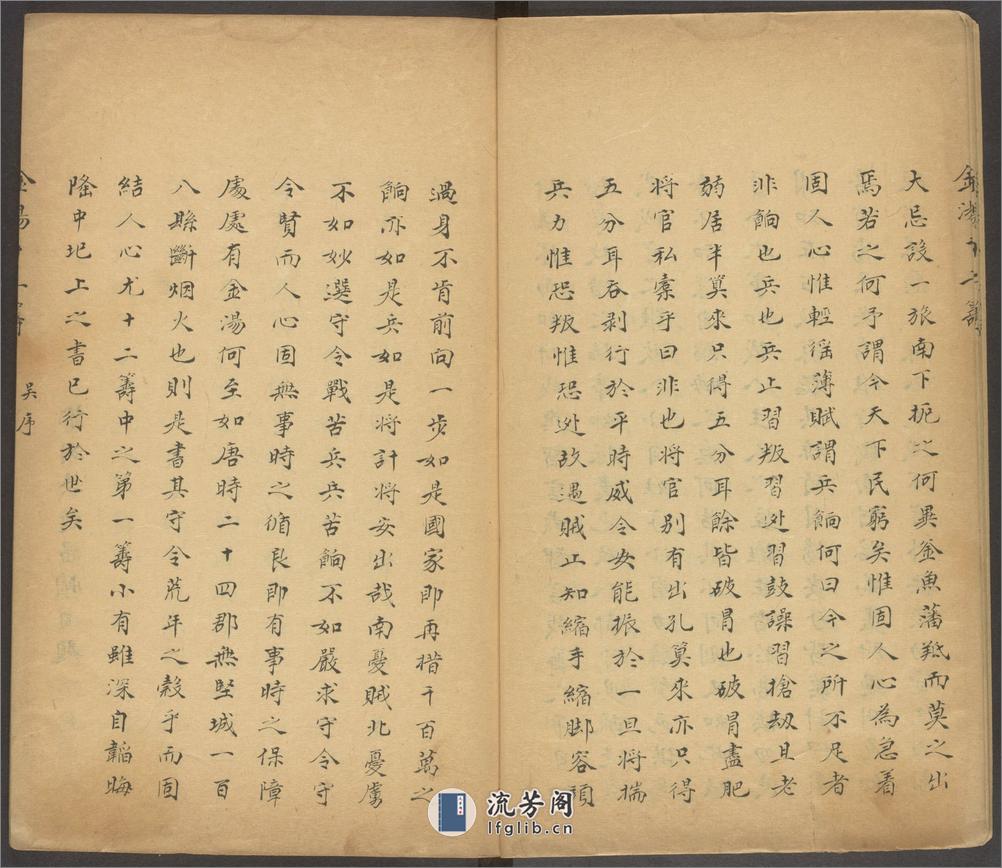 金湯十二籌
大忌設一旅南下扼之何異釜魚藩羝而莫之出
焉若之何予謂今天下民窮矣惟固人心為急着
固人心惟輕徭薄賦謂兵餉何曰今之所不足者
非餉也兵也兵止習叛習迯習鼓譟習搶劫且老
弱居半算來只得五分耳餘皆破冒也破冒盡肥
將官私槖乎曰非也將官別有出孔算來亦只得
五分耳吞剥行於平時威令安能振於一旦將揣
兵力惟恐叛惟恐迯故遇賊止知縮手縮脚容頭
過身不肯前向一步如是國家即再措千百萬之
餉亦如是兵如是將計將安出哉南憂賊北憂虜
不如妙選守令戰苦兵兵苦餉不如嚴求守令守
令賢而人心固無事時之循良即有事時之保障
處處有金湯何至如唐時二十四郡無堅城一百
八縣斷烟火也則是書其守令荒年之穀乎而固
結人心尤十二籌中之第一籌小有雖深自韜晦
隆中圯上之書已行於世矣
金湯十二籌 吴序
流芳阁
lfglib.cn